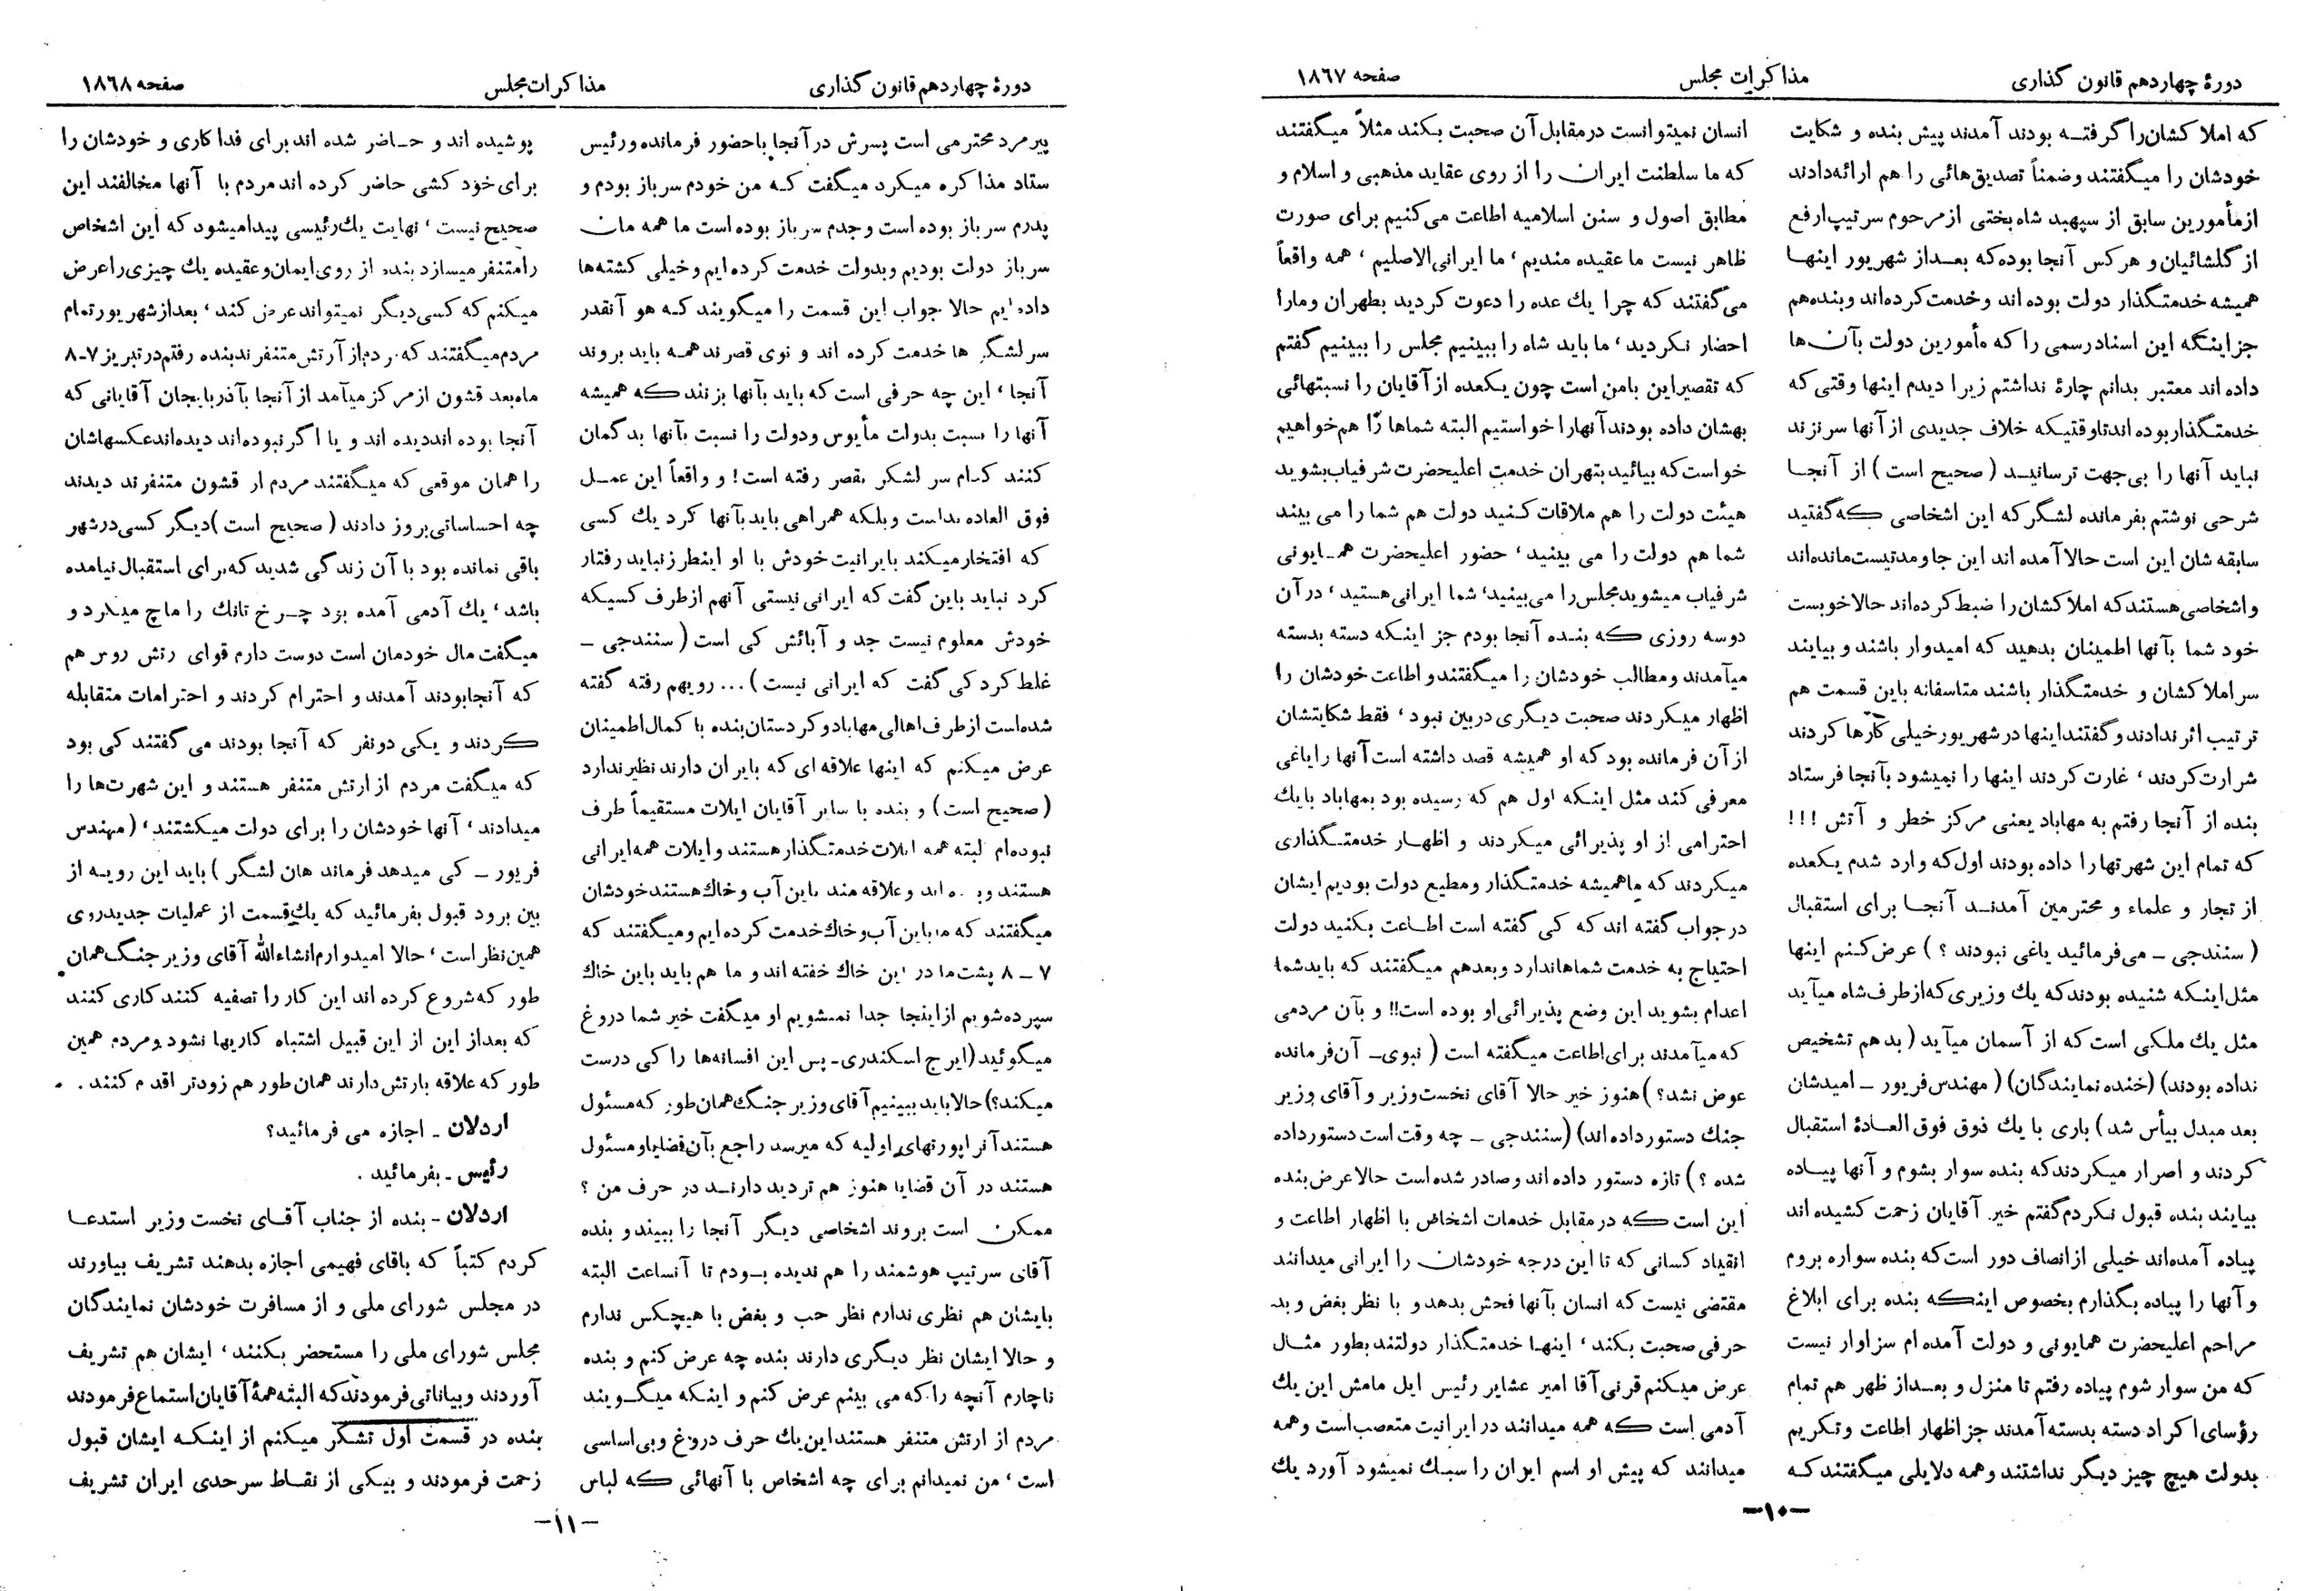 دورهٔ چهاردهم قانون گذاری
مذاکرات مجلس
صفحه ۱۸۶۷
که املاکشان را گرفته بودند آمدند پیش بنده و شکایت
خودشان را میگفتند و ضمناً تصدیق‌هائی را هم ارائه دادند
از مأمورین سابق از سپهبد شاه بختی از مرحوم سرتیپ ارفع
از گلشائیان و هر کس آنجا بوده که بعد از شهریور اینها
همیشه خدمتگذار دولت بوده اند و خدمت کرده‌اند و بنده هم
جز اینکه این اسناد رسمی را که مأمورین دولت بآن ها
داده اند معتبر بدانم چارهٔ نداشتم زیرا دیدم اینها وقتی که
خدمتگذار بوده اند تا وقتیکه خلاف جدیدی از آنها سر نزند
نباید آنها را بی جهت ترسانید (صحیح است) از آنجا
شرحی نوشتم بفرمانده لشگر که این اشخاصی که گفتید
سابقه شان این است حالا آمده اند این جا و مدتیست مانده‌اند
و اشخاصی هستند که املاکشان را ضبط کرده‌اند حالا خوبست
خود شما بآنها اطمینان بدهید که امیدوار باشند و بیایند
سر املاکشان و خدمتگذار باشند متاسفانه باین قسمت هم
ترتیب اثر ندادند و گفتند اینها در شهریور خیلی کارها کردند
شرارت کردند ، غارت کردند اینها را نمیشود بآنجا فرستاد
بنده از آنجا رفتم به مهاباد یعنی مرکز خطر و آتش !!!
که تمام این شهرتها را داده بودند اول که وارد شدم یکعده
از تجار و علماء و محترمین آمدند آنجا برای استقبال
(سنندجی ـ می فرمائید یاغی نبودند ؟) عرض کنم اینها
مثل اینکه شنیده بودند که یك وزیری که از طرف شاه میآید
مثل یك ملکی است که از آسمان میآید (بد هم تشخیص
نداده بودند) (خنده نمایندگان) (مهندس فریور ـ امیدشان
بعد مبدل بیأس شد) باری با یك ذوق فوق العادهٔ استقبال
کردند و اصرار میکردند که بنده سوار بشوم و آنها پیاده
بیایند بنده قبول نکردم گفتم خیر آقایان زحمت کشیده اند
پیاده آمده‌اند خیلی از انصاف دور است که بنده سواره بروم
و آنها را پیاده بگذارم بخصوص اینکه بنده برای ابلاغ
مراحم اعلیحضرت همایونی و دولت آمده ام سزاوار نیست
که من سوار شوم پیاده رفتم تا منزل و بعد از ظهر هم تمام
رؤسای اکراد دسته بدسته آمدند جز اظهار اطاعت و تکریم
بدولت هیچ چیز دیگر نداشتند و همه دلایلی میگفتند که
انسان نمیتوانست در مقابل آن صحبت بکند مثلاً میگفتند
که ما سلطنت ایران را از روی عقاید مذهبی و اسلام و
مطابق اصول و سنن اسلامیه اطاعت می کنیم برای صورت
ظاهر نیست ما عقیده مندیم ، ما ایرانی الاصلیم ، همه واقعاً
می گفتند که چرا یك عده را دعوت کردید بطهران و مارا
احضار نکردید ، ما باید شاه را ببینیم مجلس را ببینیم گفتم
که تقصیر این با من است چون یکعده از آقایان را نسبتهائی
بهشان داده بودند آنها را خواستیم البته شماها را هم خواهیم
خواست که بیائید بتهران خدمت اعلیحضرت شرفیاب بشوید
هیئت دولت را هم ملاقات کنید دولت هم شما را می بیند
شما هم دولت را می بینید ، حضور اعلیحضرت همـایونی
شرفیاب میشوید مجلس را می بینید ، شما ایرانی هستید ، در آن
دوسه روزی که بنده آنجا بودم جز اینکه دسته بدسته
میآمدند و مطالب خودشان را میگفتند و اطاعت خودشان را
اظهار میکردند صحبت دیگری در بین نبود ، فقط شکایتشان
از آن فرمانده بود که او همیشه قصد داشته است آنها را یاغی
معرفی کند مثل اینکه اول هم که رسیده بود بمهاباد با یك
احترامی از او پذیرائی میکردند و اظهار خدمتگذاری
میکردند که ما همیشه خدمتگذار و مطیع دولت بودیم ایشان
در جواب گفته اند که کی گفته است اطاعت بکنید دولت
احتیاج به خدمت شماها ندارد و بعد هم میگفتند که باید شما
اعدام بشوید این وضع پذیرائی او بوده است!! و بآن مردمی
که میآمدند برای اطاعت میگفته است (نبوی ـ آن فرمانده
عوض نشد؟) هنوز خیر حالا آقای نخست وزیر و آقای وزیر
جنك دستور داده اند) (سنندجی ـ چه وقت است دستور داده
شده ؟) تازه دستور داده اند و صادر شده است حالا عرض بنده
این است که در مقابل خدمات اشخاص با اظهار اطاعت و
انقیاد کسانی که تا این درجه خودشان را ایرانی میدانند
مقتضی نیست که انسان بآنها فحش بدهد و با نظر بغض و بد
حرفی صحبت بکند ، اینها خدمتگذار دولتند بطور مثال
عرض میکنم قرنی آقا امیر عشایر رئیس ایل مامش این یك
آدمی است که همه میدانند در ایرانیت متعصب است و همه
میدانند که پیش او اسم ایران را سبك نمیشود آورد یك
ـ۱۰ـ
دورهٔ چهاردهم قانون گذاری
مذاکرات مجلس
صفحه ۱۸۶۸
پیر مرد محترمی است پسرش در آنجا با حضور فرمانده و رئیس
ستاد مذاکره میکرد میگفت که من خودم سرباز بودم و
پدرم سرباز بوده است و جدم سرباز بوده است ما همه مان
سرباز دولت بودیم و بدولت خدمت کرده ایم و خیلی کشته‌ها
داده ایم حالا جواب این قسمت را میگویند که هو آنقدر
سرلشگر ها خدمت کرده اند و توی قصرند همه باید بروند
آنجا ، این چه حرفی است که باید بآنها بزنند که همیشه
آنها را نسبت بدولت مأیوس و دولت را نسبت بآنها بدگمان
کنند کدام سر لشکر بقصر رفته است ! و واقعاً این عمل
فوق العاده بد است و بلکه همراهی باید بآنها کرد یك کسی
که افتخار میکند بایرانیت خودش با او اینطرز نباید رفتار
کرد نباید باین گفت که ایرانی نیستی آنهم از طرف کسیکه
خودش معلوم نیست جد و آبائش کی است (سنندجی ـ
غلط کرد کی گفت که ایرانی نیست) ... رویهم رفته گفته
شده است از طرف اهالی مهاباد و کردستان بنده با کمال اطمینان
عرض میکنم که اینها علاقه ای که بایران دارند نظیر ندارد
(صحیح است) و بنده با سایر آقایان ایلات مستقیماً طرف
نبوده‌ام البته همه ایلات خدمتگذار هستند و ایلات همه ایرانی
هستند و بوده اند و علاقه مند باین آب و خاك هستند خودشان
میگفتند که ما باین آب و خاك خدمت کرده ایم و میگفتند که
۷ ـ ۸ پشت ما در این خاك خفته اند و ما هم باید باین خاك
سپرده شویم از اینجا جدا نمیشویم او میگفت خیر شما دروغ
میگوئید (ایرج اسکندری ـ پس این افسانه‌ها را کی درست
میکند؟) حالا باید ببینیم آقای وزیر جنك همان طور که مسئول
هستند آن راپورتهای اولیه که میرسد راجع بآن قضایا و مسئول
هستند در آن قضایا هنوز هم تردید دارند در حرف من ؟
ممکن است بروند اشخاصی دیگر آنجا را ببیند و بنده
آقای سرتیپ هوشمند را هم ندیده بودم تا آنساعت البته
بایشان هم نظری ندارم نظر حب و بغض با هیچکس ندارم
و حالا ایشان نظر دیگری دارند بنده چه عرض کنم و بنده
ناچارم آنچه را که می بینم عرض کنم و اینکه میگویند
مردم از ارتش متنفر هستند این یك حرف دروغ و بی اساسی
است ، من نمیدانم برای چه اشخاص با آنهائی که لباس
پوشیده اند و حـاضر شده اند برای فداکاری و خودشان را
برای خود کشی حاضر کرده اند مردم با آنها مخالفند این
صحیح نیست ، نهایت یك رئیسی پیدا میشود که این اشخاص
را متنفر میسازد بنده از روی ایمان و عقیده یك چیزی را عرض
میکنم که کسی دیگر نمیتواند عرض کند ، بعد از شهریور تمام
مردم میگفتند که مردم از آرتش متنفرند بنده رفتم در تبریز ۷ـ۸
ماه بعد قشون از مرکز میآمد از آنجا بآذربایجان آقایانی که
آنجا بوده اند دیده اند و یا اگر نبوده‌اند دیده‌اند عکسهاشان
را همان موقعی که میگفتند مردم از قشون متنفرند دیدند
چه احساساتی بروز دادند (صحیح است) دیگر کسی در شهر
باقی نمانده بود با آن زندگی شدید که برای استقبال نیامده
باشد ، یك آدمی آمده بود چرخ تانك را ماچ میکرد و
میگفت مال خودمان است دوست دارم قوای رتش روس هم
که آنجا بودند آمدند و احترام کردند و احترامات متقابله
کردند و یکی دو نفر که آنجا بودند می گفتند کی بود
که میگفت مردم از ارتش متنفر هستند و این شهرت‌ها را
میدادند ، آنها خودشان را برای دولت میکشتند ، (مهندس
فریور ـ کی میدهد فرماند هان لشگر) باید این رویه از
بین برود قبول بفرمائید که یك قسمت از عملیات جدید روی
همین نظر است ، حالا امیدوارم انشاءالله آقای وزیر جنگ همان
طور که شروع کرده اند این کار را تصفیه کنند کاری کنند
که بعد از این از این قبیل اشتباه کاریها نشود و مردم همین
طور که علاقه بارتش دارند همان طور هم زودتر اقدام کنند .
اردلان ـ اجازه می فرمائید؟
رئیس ـ بفرمائید .
اردلان ـ بنده از جناب آقای نخست وزیر استدعا
کردم کتباً که باقای فهیمی اجازه بدهند تشریف بیاورند
در مجلس شورای ملی و از مسافرت خودشان نمایندگان
مجلس شورای ملی را مستحضر بکنند ، ایشان هم تشریف
آوردند و بیاناتی فرمودند که البته همهٔ آقایان استماع فرمودند
بنده در قسمت اول تشکر میکنم از اینکه ایشان قبول
زحمت فرمودند و بیکی از نقاط سرحدی ایران تشریف
ـ۱۱ـ